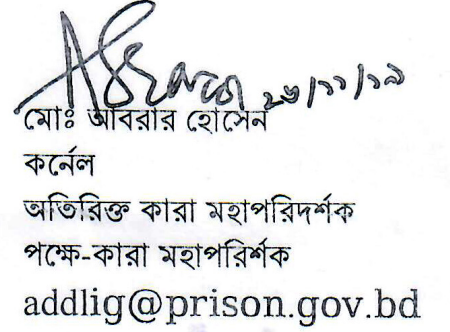 ২৬/১১/১৯
মোঃ আবরার হোসেন
কর্নেল
অতিরিক্ত কারা মহাপরিদর্শক
পক্ষে-কারা মহাপরির্শক
addlig@prison.gov.bd